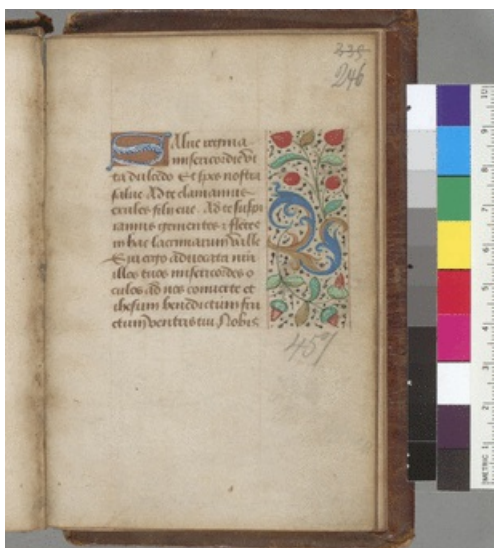 235
246
Salve regina
misericordie vi
ta dulcedo Et spes nostra
salve Ad te clamamus
exules filii eve. Ad te suspi
ramus gementes & flete
in hac lacrimarum valle
Eia ergo advocata nrā
illos tuos misericordes o
culos ad nos converte et
ihesum benedictum fru
ctum ventris tui Nobis
459
METRIC 1 2 3 4 5 6 7 8 9 10